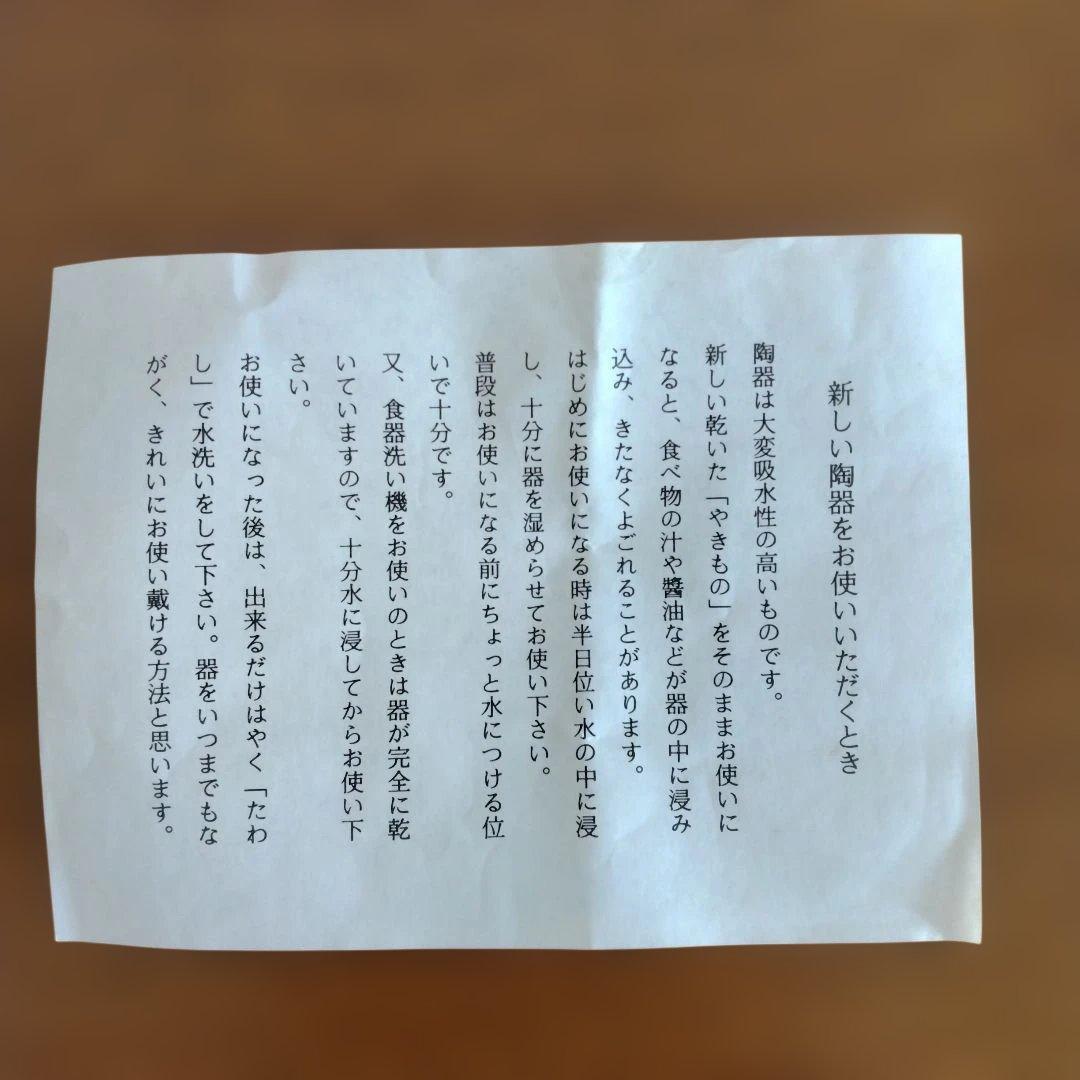 新しい陶器をお使いいただくとき
陶器は大変吸水性の高いものです。
新しい乾いた「やきもの」をそのままお使いに
なると、食べ物の汁や醬油などが器の中に浸み
込み、きたなくよごれることがあります。
はじめにお使いになる時は半日位い水の中に浸
し、十分に器を湿めらせてお使い下さい。
普段はお使いになる前にちょっと水につける位
いで十分です。
又、食器洗い機をお使いのときは器が完全に乾
いていますので、十分水に浸してからお使い下
さい。
お使いになった後は、出来るだけはやく「たわ
し」で水洗いをして下さい。器をいつまでもな
がく、きれいにお使い戴ける方法と思います。